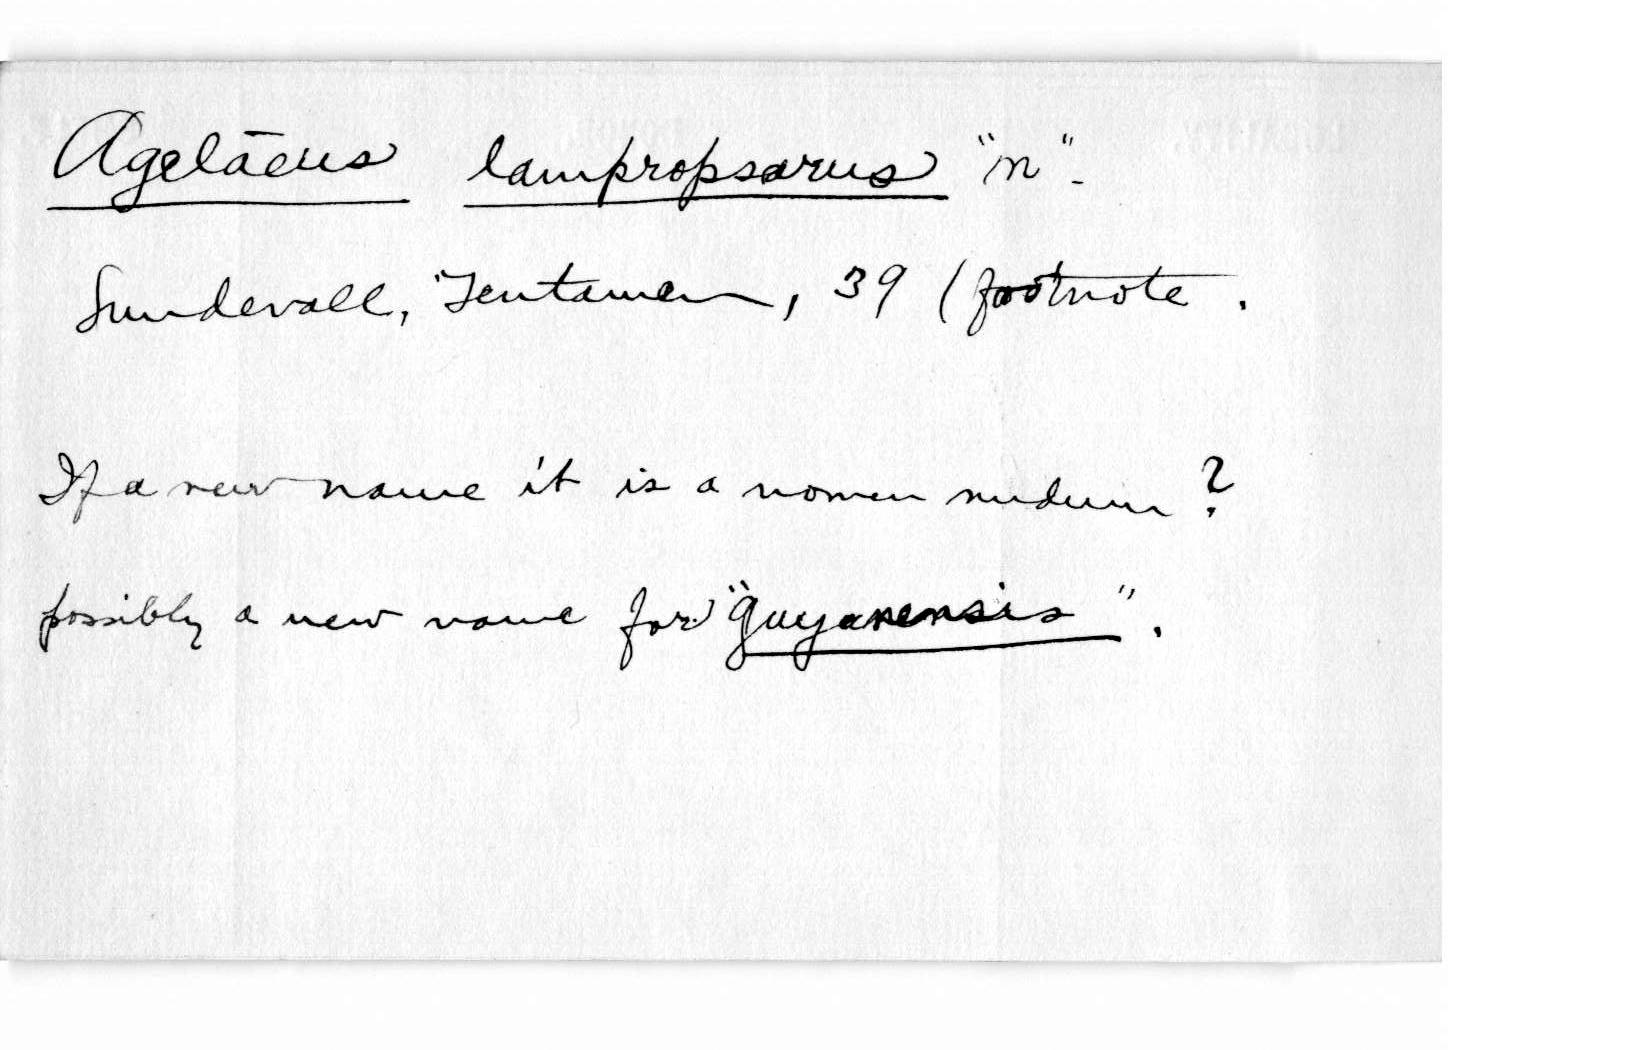 Agelāeus lampropsarus "n".
Sundevall, Tentamen, 39 (footnote.
If a new name it is a nomen nudum?
possibly a new name for "guyanensis".